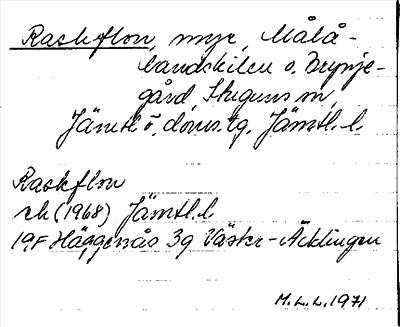 Raskflon, myr, Målå-
landskilen o. Brynje-
gård, Stuguns sn,
Jämtl ö. doms. tg. Jämtl. l.
Raskflon
rk (1968) Jämtl. l
19F Häggenås 3g Väster-Äcklingen
M.L.L. 1971